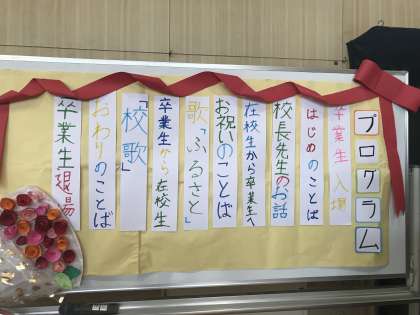 プログラム
卒業生 入場
はじめのことば
校長先生のお話
在校生から卒業生へ
お祝いのことば
歌「ふるさと」
卒業生から在校生
「校歌」
おわりのことば
卒業生退場